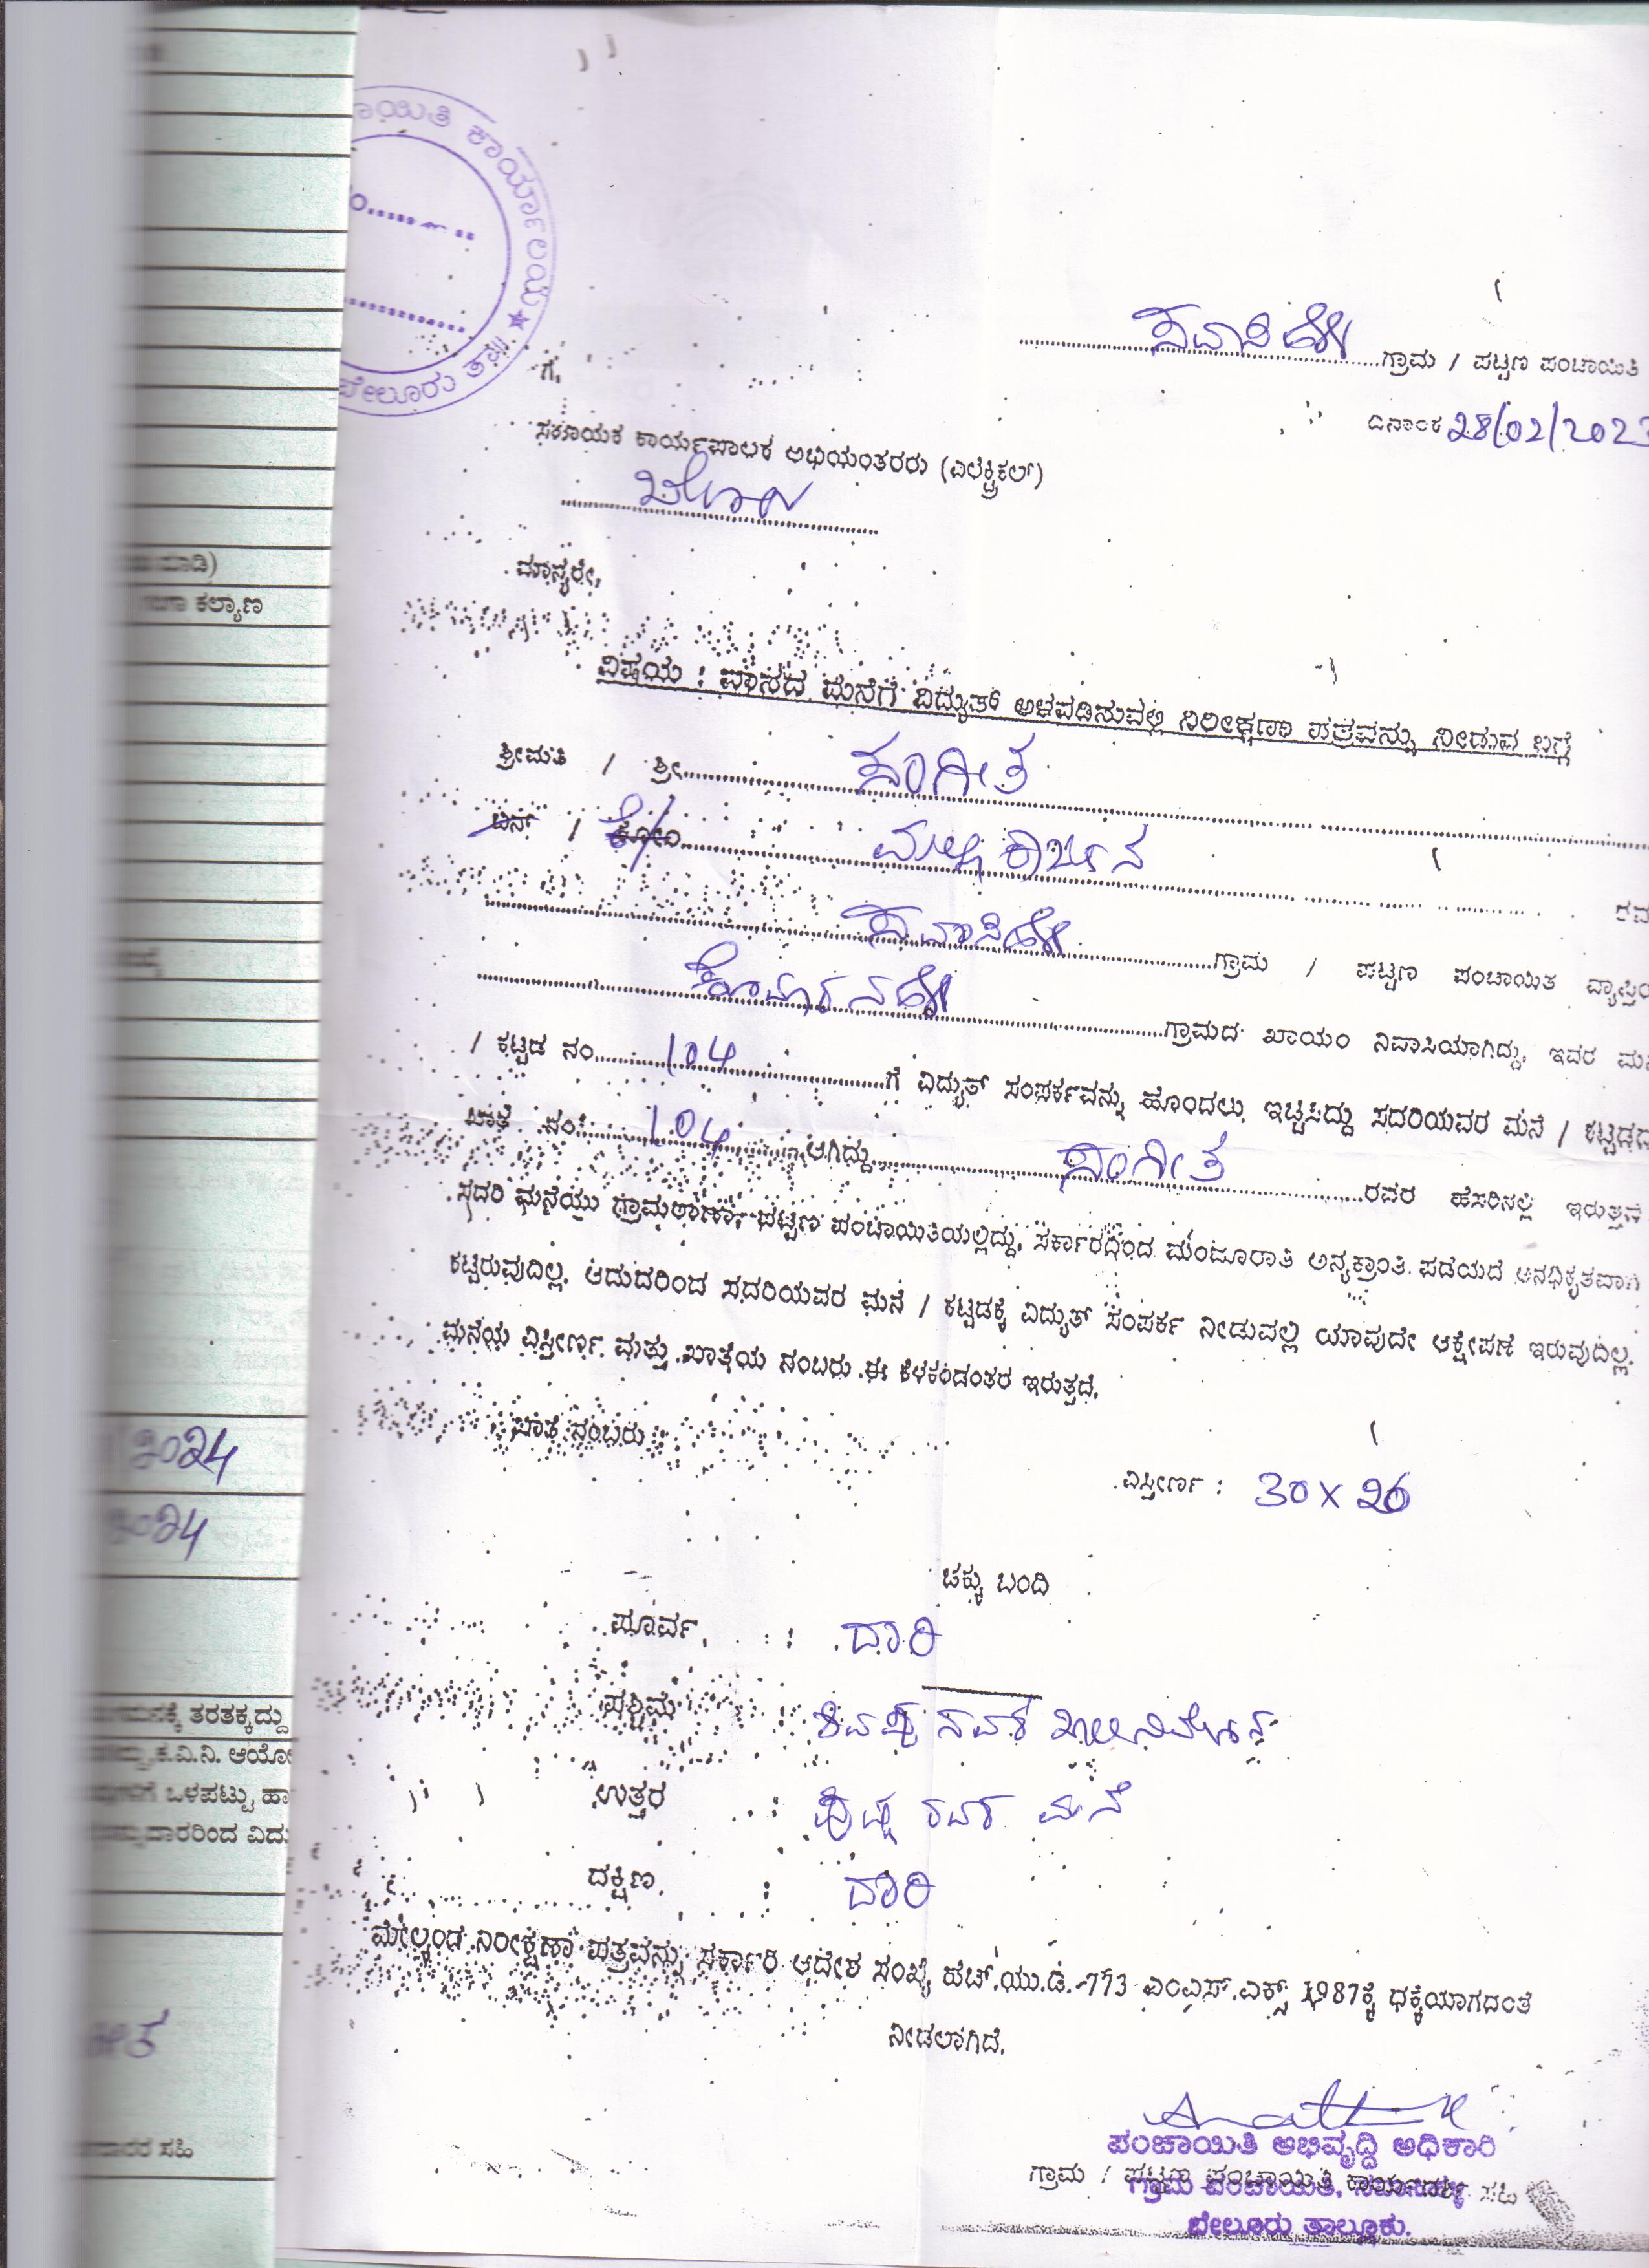 ಾಯಿತಿ ಕಾರ್ಯಾಲಯ ★
ಬೇಲೂರು ತಾ||
ಸವಾಸಿಹಳ್ಳಿ ಗ್ರಾಮ / ಪಟ್ಟಣ ಪಂಚಾಯಿತಿ
ದಿನಾಂಕ 28/02/2023
ಗೆ,
ಸಹಾಯಕ ಕಾರ್ಯಪಾಲಕ ಅಭಿಯಂತರರು (ಎಲೆಕ್ಟ್ರಿಕಲ್)
ಮಾನ್ಯರೇ,
ವಿಷಯ : ವಾಸದ ಮನೆಗೆ ವಿದ್ಯುತ್ ಅಳವಡಿಸುವಲ್ಲಿ ನಿರೀಕ್ಷಣಾ ಪತ್ರವನ್ನು ನೀಡುವ ಬಗ್ಗೆ
ಶ್ರೀಮತಿ / ಶ್ರೀ ಸಂಗೀತ
ಬಿನ್ / ಕೋಂ ಮಲ್ಲಿಕಾರ್ಜುನ ರವ
ಸವಾಸಿಹಳ್ಳಿ ಗ್ರಾಮ / ಪಟ್ಟಣ ಪಂಚಾಯಿತ ವ್ಯಾಪ್ತಿಯ
ಗ್ರಾಮದ ಖಾಯಂ ನಿವಾಸಿಯಾಗಿದ್ದು, ಇವರ ಮನೆ
/ ಕಟ್ಟಡ ನಂ 104 ಗೆ ವಿದ್ಯುತ್ ಸಂಪರ್ಕವನ್ನು ಹೊಂದಲು ಇಚ್ಚಿಸಿದ್ದು ಸದರಿಯವರ ಮನೆ / ಕಟ್ಟಡದ
ಖಾತೆ ನಂ: 104 ಆಗಿದ್ದು ಸಂಗೀತ ರವರ ಹೆಸರಿನಲ್ಲಿ ಇರುತ್ತದೆ
ಸದರಿ ಮನೆಯು ಗ್ರಾಮಠಾಣಾ, ಪಟ್ಟಣ ಪಂಚಾಯಿತಿಯಲ್ಲಿದ್ದು, ಸರ್ಕಾರದಿಂದ ಮಂಜೂರಾತಿ ಅನ್ಯಕ್ರಾಂತಿ ಪಡೆಯದೆ ಅನಧಿಕೃತವಾಗಿ
ಕಟ್ಟಿರುವುದಿಲ್ಲ. ಆದುದರಿಂದ ಸದರಿಯವರ ಮನೆ / ಕಟ್ಟಡಕ್ಕೆ ವಿದ್ಯುತ್ ಸಂಪರ್ಕ ನೀಡುವಲ್ಲಿ ಯಾವುದೇ ಆಕ್ಷೇಪಣೆ ಇರುವುದಿಲ್ಲ.
ಮನೆಯ ವಿಸ್ತೀರ್ಣ ಮತ್ತು ಖಾತೆಯ ನಂಬರು ಈ ಕೆಳಕಂಡಂತರ ಇರುತ್ತದೆ.
ಖಾತೆ ನಂಬರು :
ವಿಸ್ತೀರ್ಣ : 30 x 20
ಚಕ್ಕು ಬಂದಿ
ಪೂರ್ವ : ದಾರಿ
ಪಶ್ಚಿಮ
ಉತ್ತರ : ರವರ ಮನೆ
ದಕ್ಷಿಣ : ದಾರಿ
ಮೇಲ್ಕಂಡ ನಿರೀಕ್ಷಣಾ ಪತ್ರವನ್ನು ಸರ್ಕಾರಿ ಆದೇಶ ಸಂಖ್ಯೆ ಹೆಚ್.ಯು.ಡಿ.-773 ಎಂಎಸ್.ಎಕ್ಸ್ 1987ಕ್ಕೆ ಧಕ್ಕೆಯಾಗದಂತೆ
ನೀಡಲಾಗಿದೆ.
ಪಂಚಾಯಿತಿ ಅಭಿವೃದ್ದಿ ಅಧಿಕಾರಿ
ಗ್ರಾಮ / ಪಟ್ಟಣ ಪಂಚಾಯಿತಿ ಕಾರ್ಯದರ್ಶಿ ಸಹಿ
ಗ್ರಾಮ ಪಂಚಾಯಿತಿ, ಸವಾಸಿಹಳ್ಳಿ
ಬೇಲೂರು ತಾಲ್ಲೂಕು.
ಮಾಡಿ)
ಕಲ್ಯಾಣ
2024
2024
ತರತಕ್ಕದ್ದು
ಕ.ವಿ.ನಿ. ಆಯೋ
ಒಳಪಟ್ಟು ಹಾ
ದಾರರಿಂದ ವಿದು
ಸಹಿ